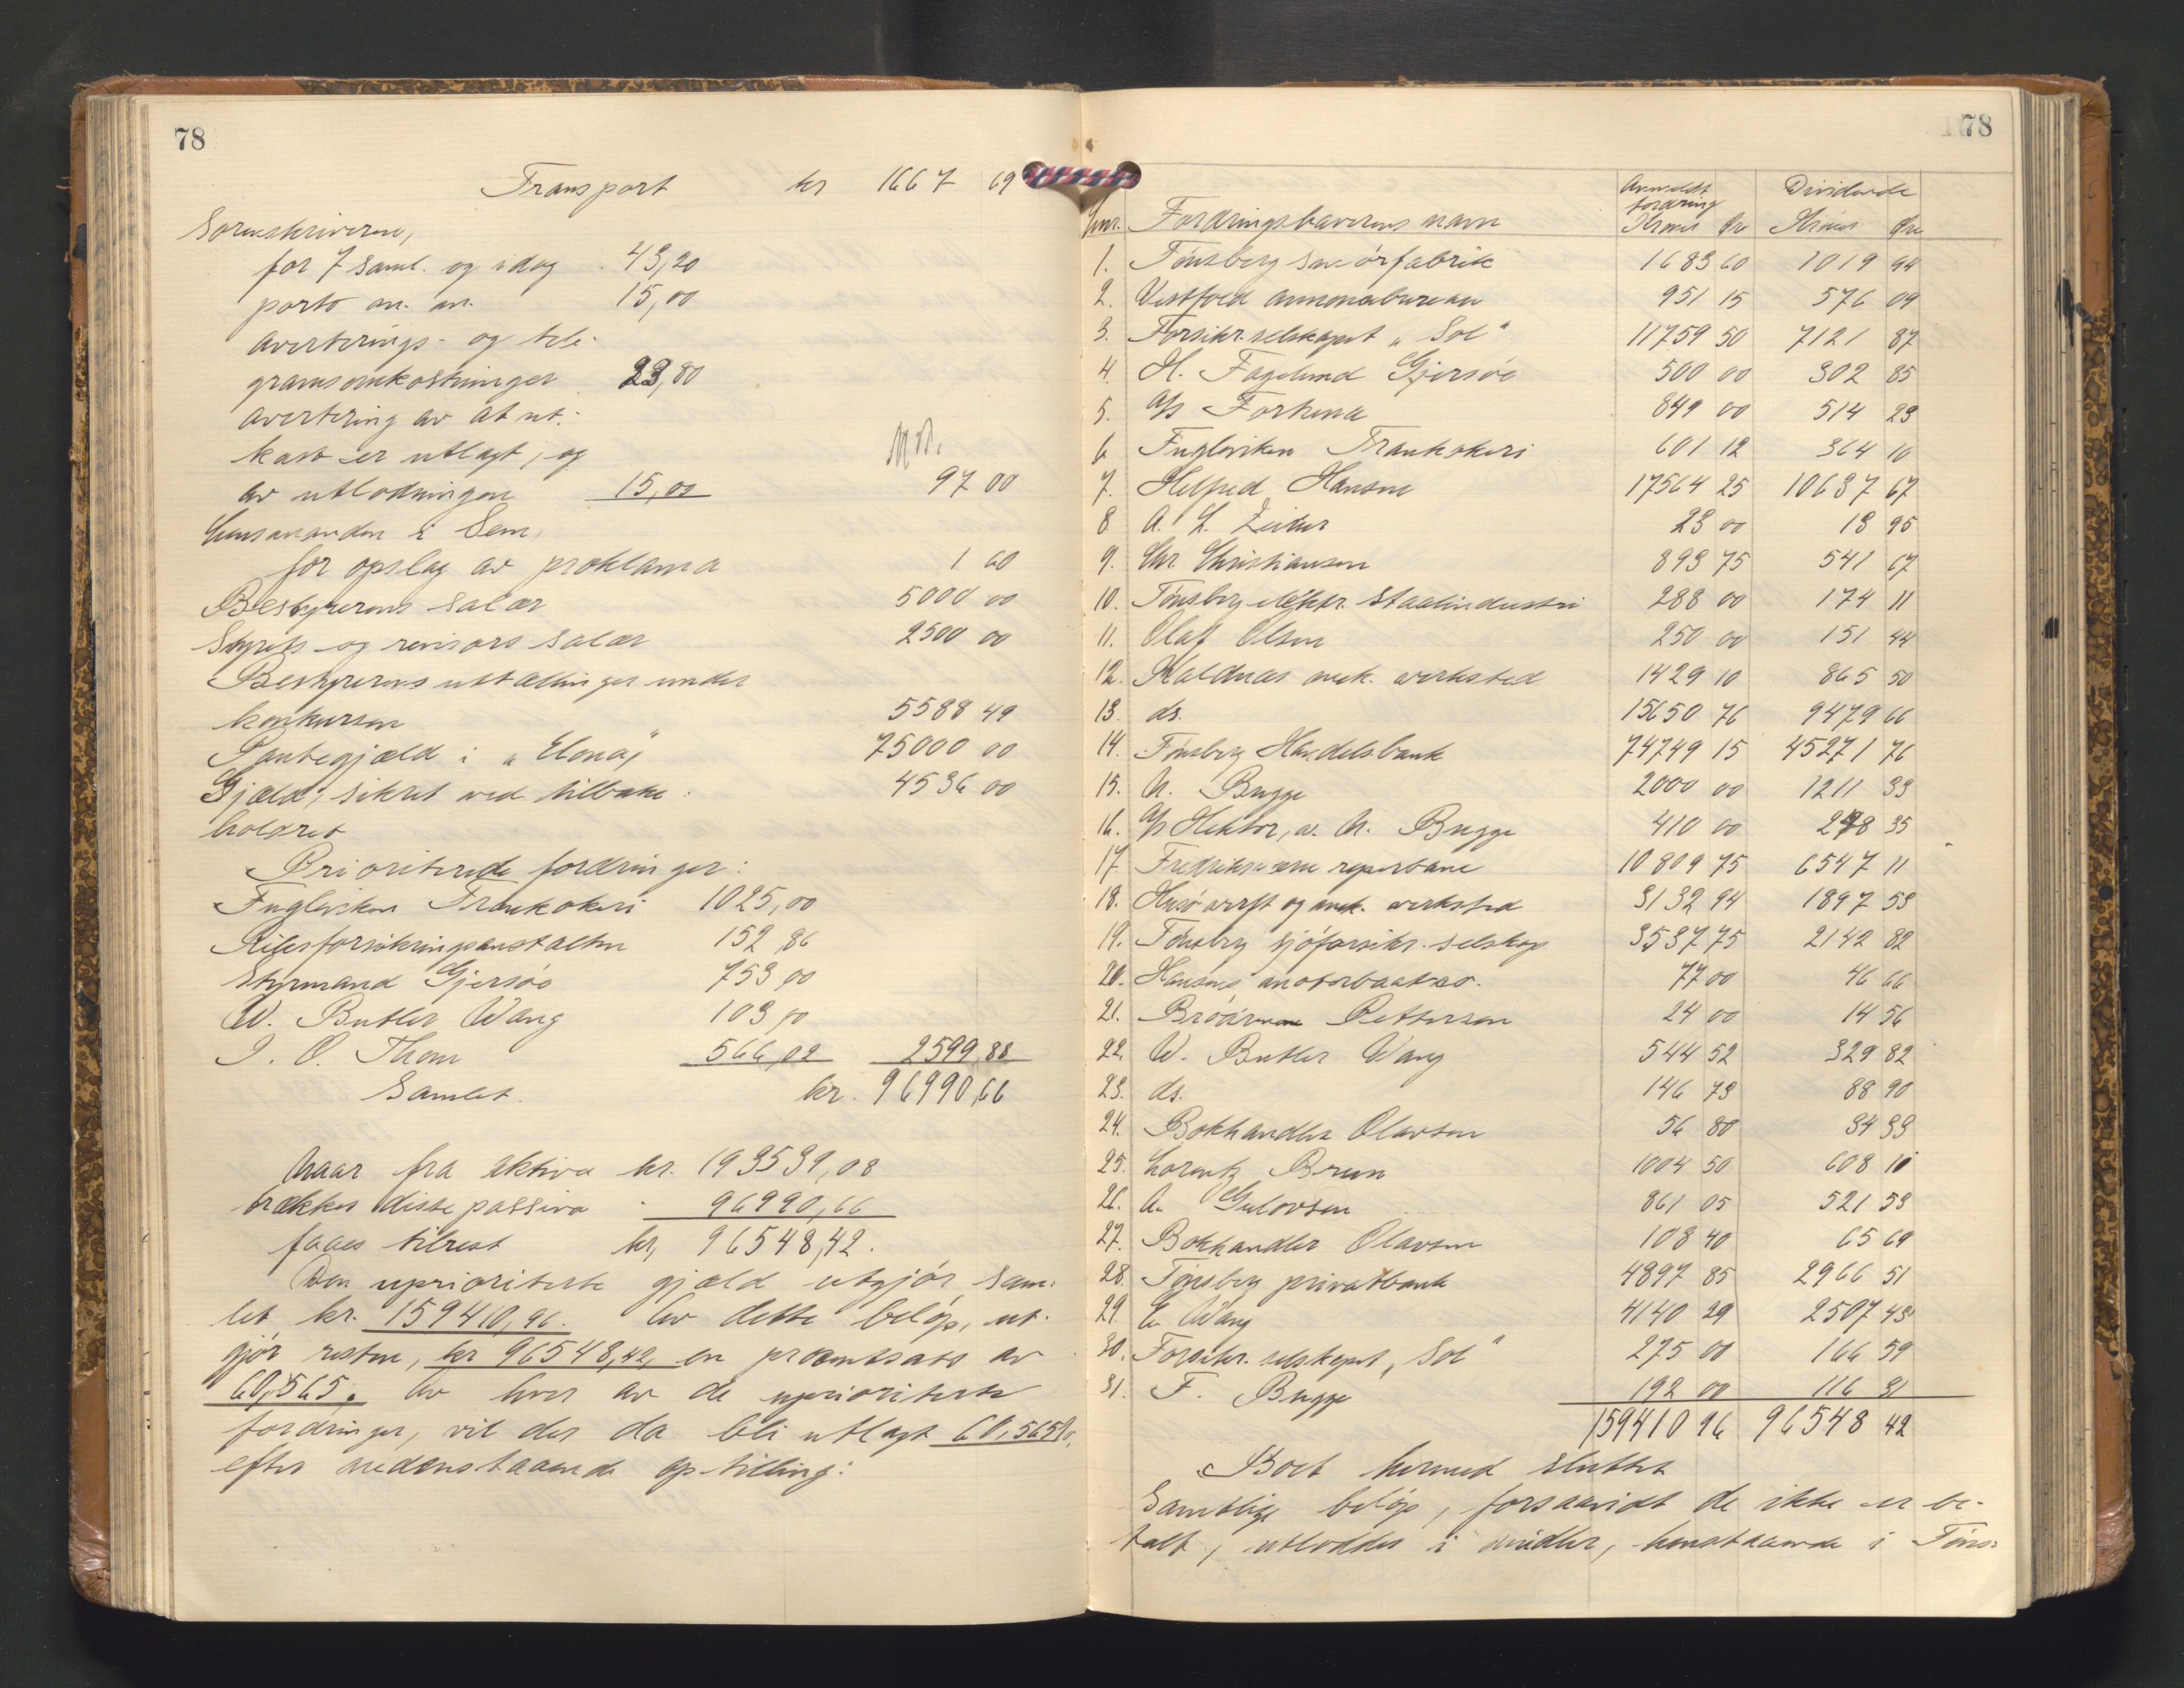 78
Transport kr 1667 69
Sorenskriveren,
for 7 saml. og idag 43,20
porto m. m. 15,00
averterings- og tele-
gramsomkostninger 23,80
avertering av at ut-
kast er utlagt, og
av utlodningen 15,00 97 00
Lensmanden i Sem,
for opslag av proklama 1 60
Bestyrerens salær 5000 00
Styrets og revisors salær 2500 00
Bestyrerens uttællinger under
konkursen 5588 49
Pantegjæld i "Elona" 75000 00
Gjæld, sikret ved tilbake- 4536 00
holdret
Prioriterede fordringer:
Fugleviken Trankokeri 1025,00
Riksforsikringsanstalten 152,86
Styrmand Gjersøe 753,00
W. Butler Wang 103,00
I. O. Thon 566,02 2599,88
Samlet. kr. 96990,66
Naar fra aktiva kr. 193539,08
trækkes disse passiva - 96990,66
faaes tilrest kr, 96548,42.
Den uprioriterte gjæld utgjør sam-
let kr. 159410,96. Av dette beløp, ut-
gjør resten, kr 96548,42, en procentsats av
60,565. Av hver av de uprioriterte
fordringer, vil der da bli utlagt 60,565%,
efter nedenstaaende opstilling:
78
Anmeldt fordring Dividende
Lnr. Fordringshaverens navn Kroner Øre Kroner Øre
1. Tønsberg smørfabrik 1683 60 1019 94
2. Vestfold annoncebureau 951 15 576 09
3. Forsikr. selskapet "Sol" 11759 50 7121 87
4. H. Fagelund Gjersøe 500 00 302 85
5. A/s Fortuna 849 00 514 23
6 Fugleviken Trankokeri 601 12 364 10
7. Helfred Hansen 17564 25 10637 67
8. A. L. Zeiner 23 00 13 95
9. Chr. Christiansen 893 75 541 67
10. Tønsberg elektr. staalindustri 288 00 174 11
11. Olaf Olsen 250 00 151 44
12. Kaldnæs mek. verksted 1429 10 865 50
13. ds. 15650 76 9479 66
14. Tønsberg Handelsbank 74749 15 45271 76
15. N. Bugge 2000 00 1211 33
16. A/s Hektor, v. N. Bugge 410 00 248 35
17. Fredriksværn reperbane 10809 75 6547 11
18. Husø verft og mek. verksted 3132 94 1897 53
19. Tønsberg sjøforsikr. selskap 3537 75 2142 82
20. Hansens motorbaatko. 77 00 46 66
21. Brødrene Pettersen 24 00 14 56
22. W. Butler Wang 544 52 329 82
23. ds. 146 73 88 90
24. Bokhandler Olavsen 56 80 34 33
25. Lorentz Bruun 1004 50 608 10
26. A. Gulovsen 861 05 521 53
27. Bokhandler Olavsen 108 40 65 69
28. Tønsberg privatbank 4897 85 2966 51
29. E. Wang 4140 29 2507 43
30. Forsikr. selskapet "Sol" 275 00 166 59
31. F. Bugge 192 00 116 31
159410 96 96548 42
Boet hermed sluttet
Samtlige beløp, forsaavidt de ikke er be-
talt, utloddes i midler, henstaaende i Tøns-